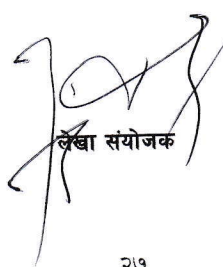 लेखा संयोजक
२७